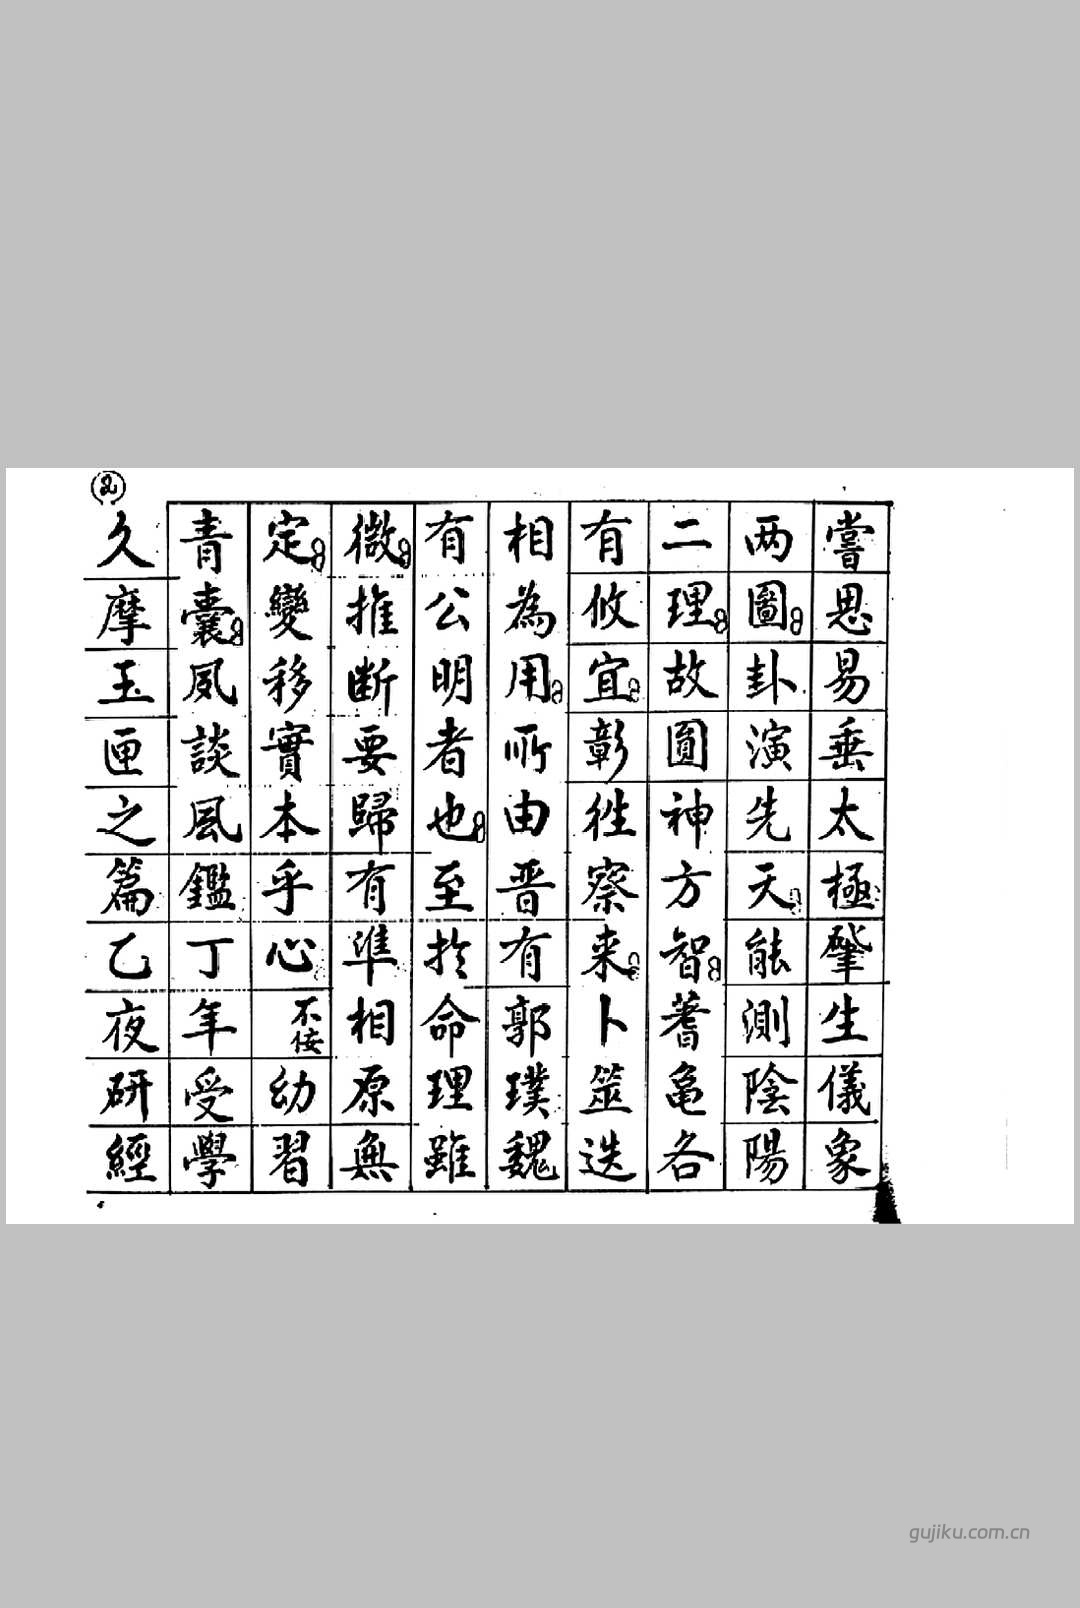 嘗思易垂太極肇生儀象
两圖卦演先天能測陰陽
二理故圓神方智蓍龜各
有攸宜彰徃察来卜筮迭
相為用所由晋有郭璞魏
有公明者也至扵命理雖
微推断要歸有準相原無
定變移實本乎心不佞幼習
青囊夙談風鑑丁年受學
久摩玉匣之篇乙夜研經
2
gujiku.com.cn